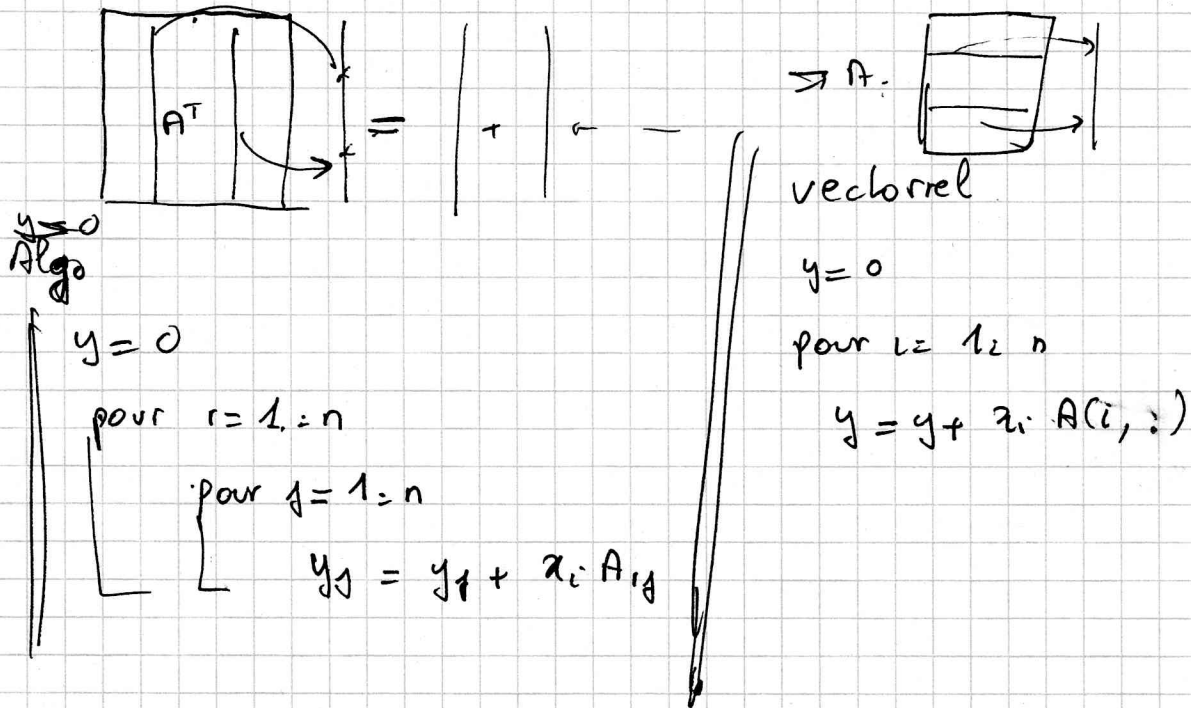 Aᵀ
=
+
+ - -
y = 0
Algo
y = 0
pour i = 1 : n
pour j = 1 : n
yj = yj + xi · Aij
⇒ A :
vectoriel
y = 0
pour i = 1 : n
y = y + xi · A(i, :)